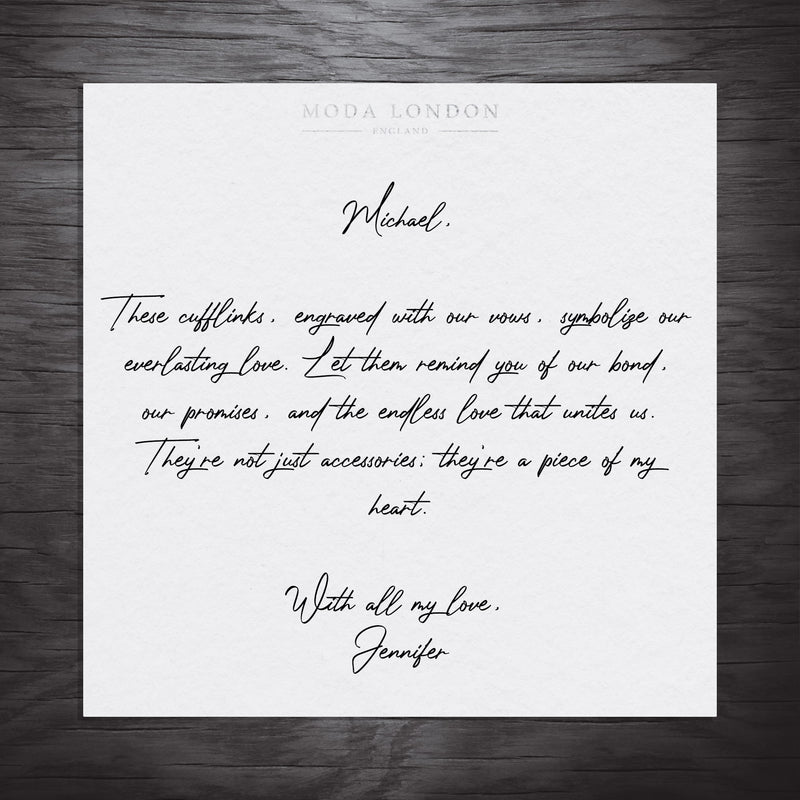 MODA LONDON
ENGLAND
Michael,
These cufflinks, engraved with our vows, symbolize our
everlasting love. Let them remind you of our bond,
our promises, and the endless love that unites us.
They're not just accessories; they're a piece of my
heart.
With all my love,
Jennifer